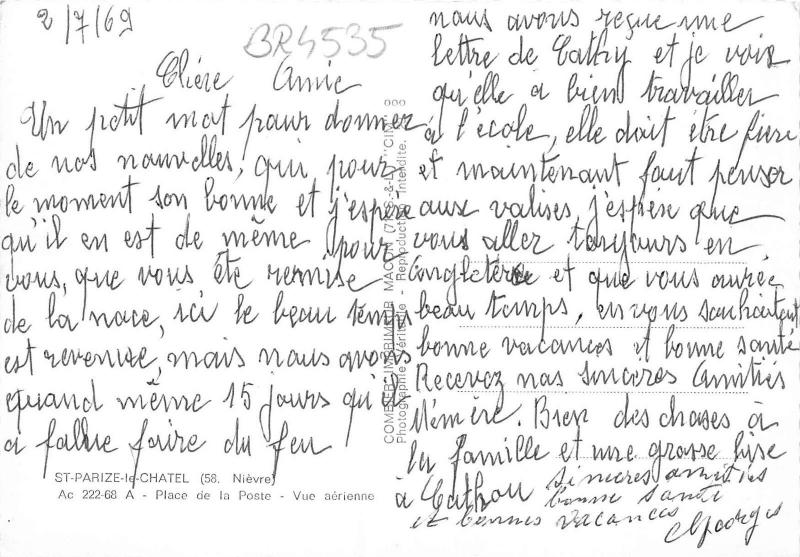 2/7/69
BR4535
Chère Amie
Un petit mot pour donner
de nos nouvelles, qui pour
le moment son bonne et j'espère
qu'il en est de même pour
vous, que vous ête remise
de la noce, ici le beau temps
est revenue, mais nous avons
quand même 15 jours qu'il
a fallue faire du feu
ST-PARIZE-le-CHATEL (58. Nièvre)
Ac 222-68 A - Place de la Poste - Vue aérienne
COMBIER IMPRIMEUR MACON
Photographie Aérienne - Reproduction Interdite.
nous avons reçue une
lettre de Cathy et je vois
qu'elle a bien travailler
à l'école, elle doit être fière
et maintenant faut penser
aux valises, j'espère que
vous aller toujours en
Angleterre et que vous aurée
beau temps, en vous souhaitent
bonne vacances et bonne santé
Recevez nos sincères Amitiés
Mémère. Bien des choses à
la famille et une grosse bise
à Cathou
sincères amitiés
bonne santé
et bonnes vacances
Georges